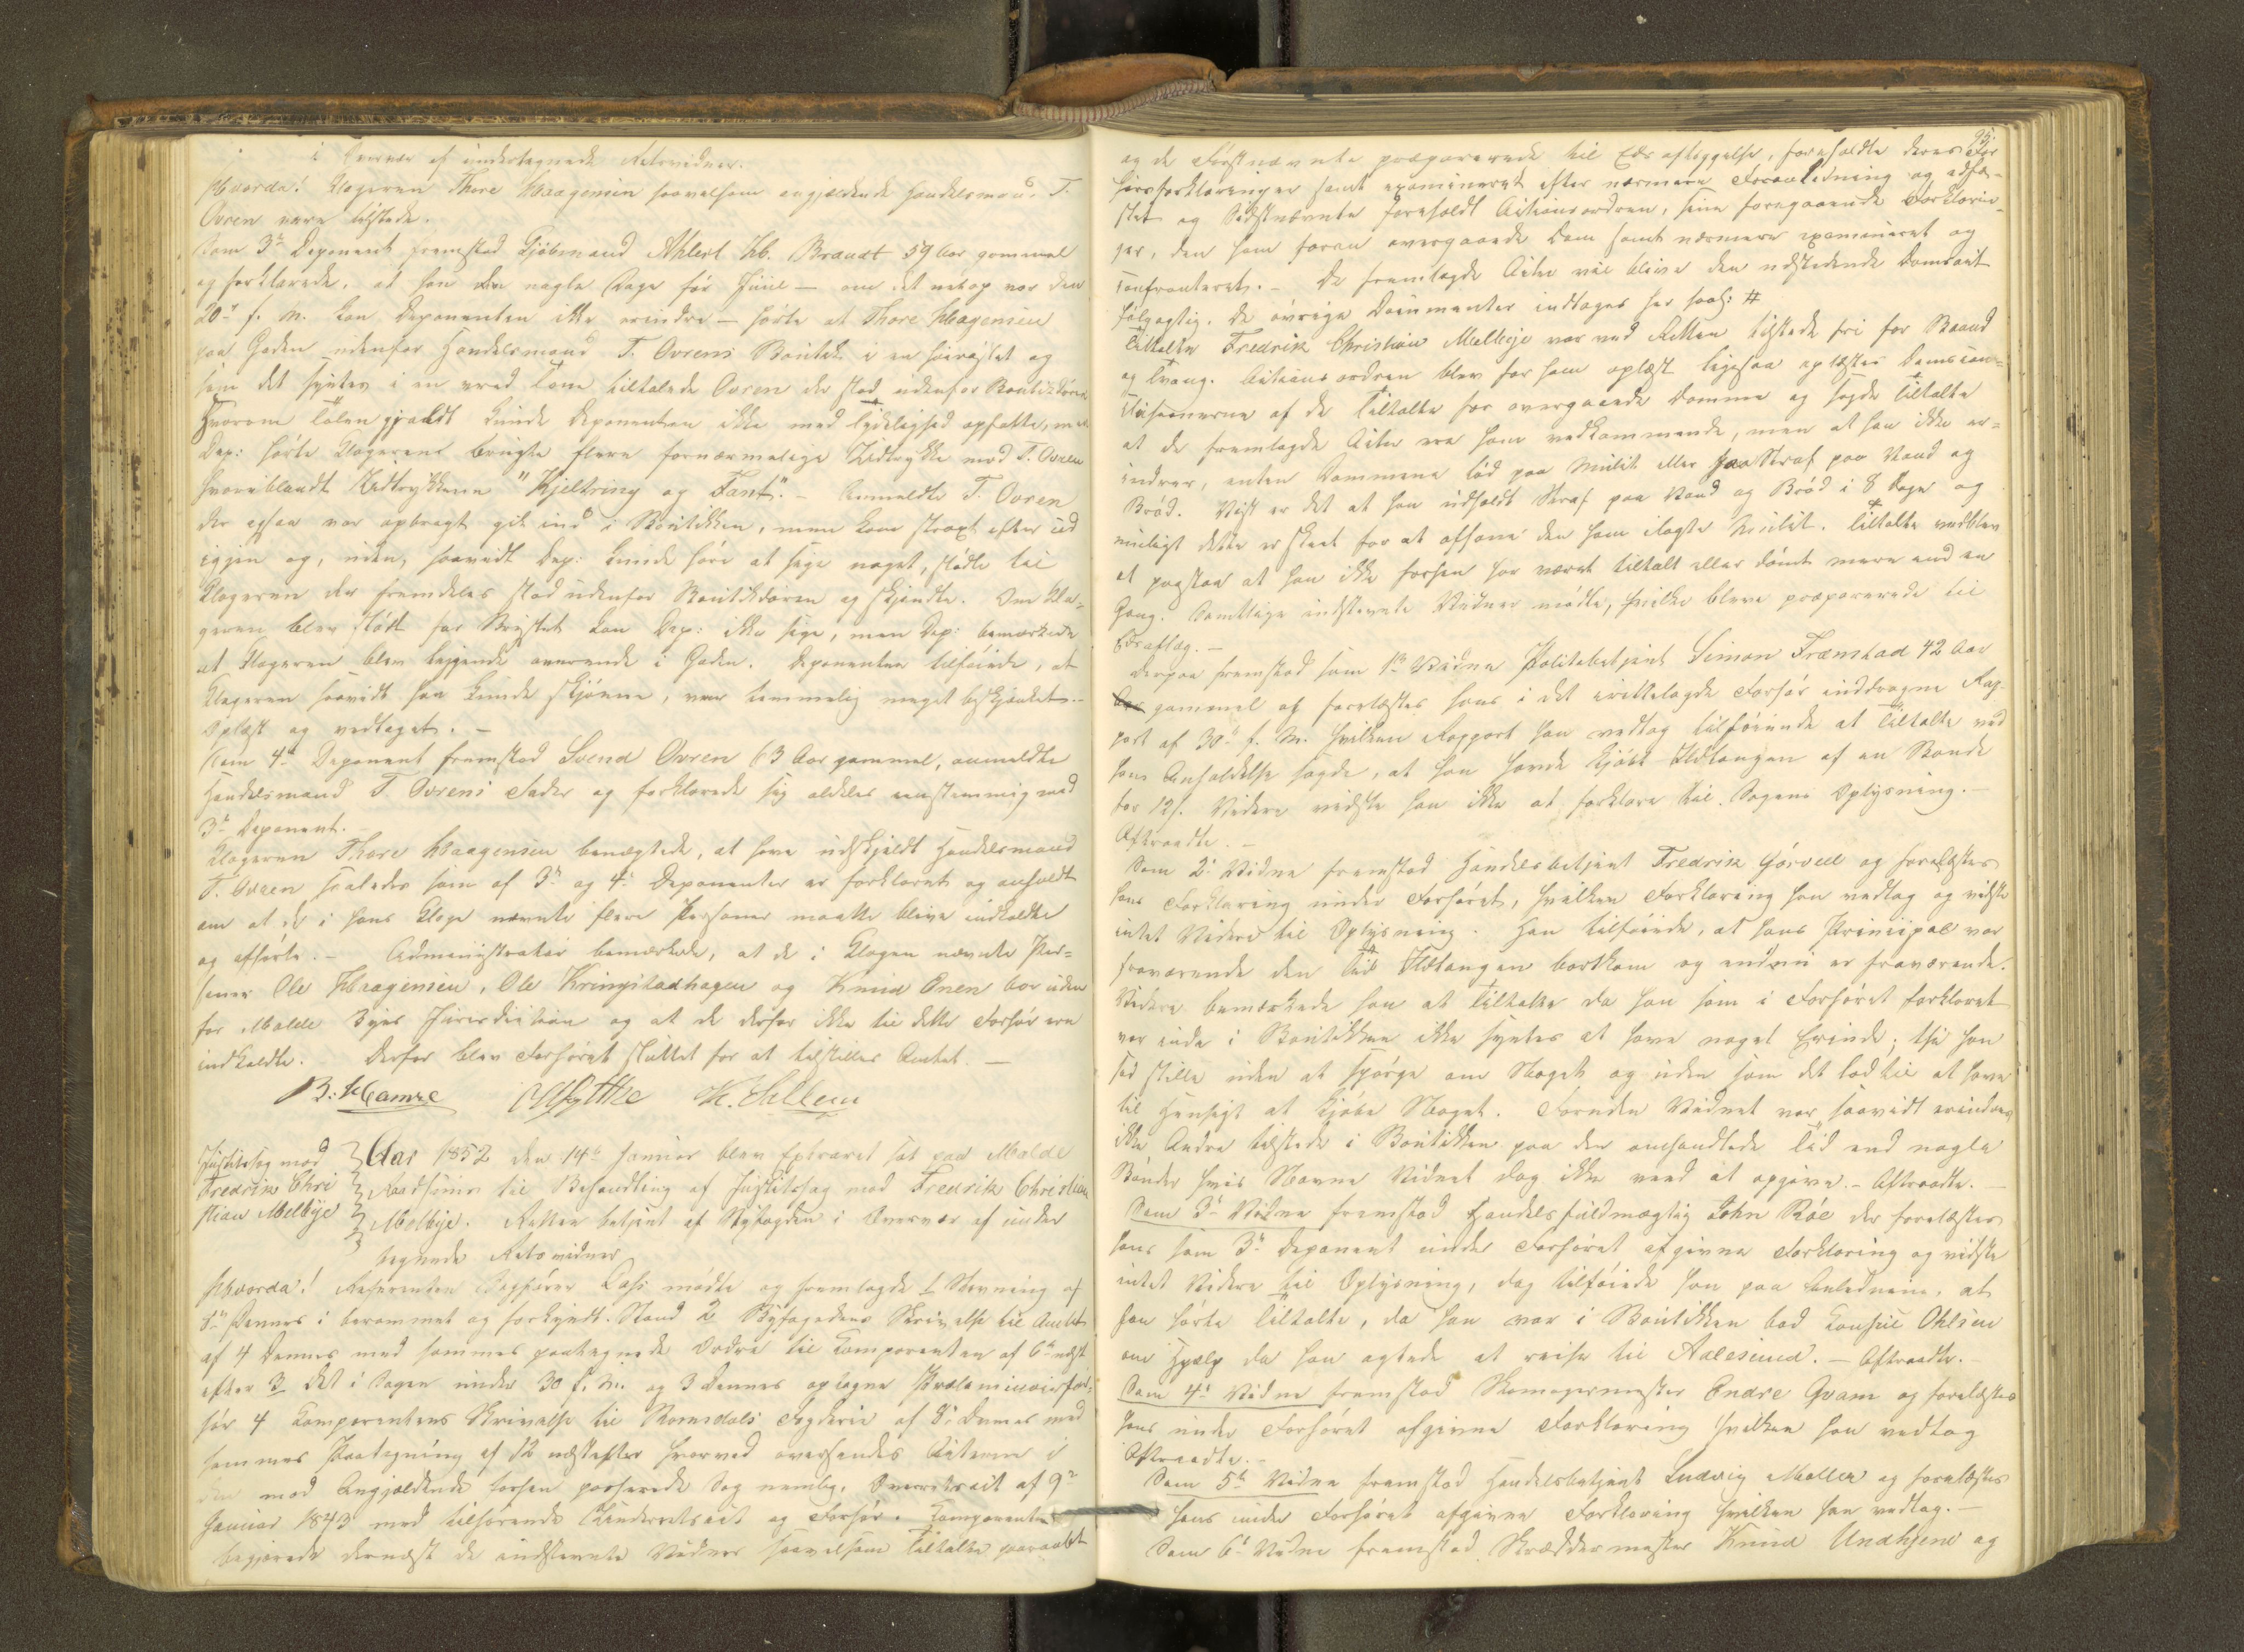 i Overvær af undertegnede Retsvidner.
Hvorda! Klageren Thore Haagensen saavelsom angjældende Handelsmand T.
Ovren vare tilstede.
Som 3die Deponent fremstod Kjøbmand Ahlert Hb. Brandt 59 Aar gammel
og forklarede, at han en nogle Dage før Juul — om det netop var den
20de f. M. kan Deponenten ikke erindre — hørte at Thore Haagensen
paa Gaden udenfor Handelsmand T. Ovrens Boutik i en høirøstet og
som det syntes i en vred Tone tiltalede Ovren der stod udenfor Boutikdøren
Hvorom Talen gjaldt kunde Deponenten ikke med Tydelighed opfatte, men
Dep: hørte Klageren brugte flere fornærmelige Udtrykke mod T. Ovren
hvoriblandt Udtrykkene "Kjeltring og Fant". - Anmeldte T. Ovren
der ogsaa var opbragt gik ind i Boutikken, men kom straxt efter ud
igjen og, uden, saavidt Dep: kunde høre at sige noget, stødte til
Klageren der fremdeles stod udenfor Boutikdøren og skjendte. Om Kla-
geren blev stødt for Brystet kan Dep: ikke sige, men Dep: bemærkede
at Klageren blev liggende overende i Gaden. Deponenten tilføiede, at
Klageren saavidt han kunde skjønne, var temmelig meget beskjænket. -
Oplæst og vedtaget. -
Som 4de Deponent fremstod Svend Ovren 63 Aar gammel, anmeldte
Handelsmand T Ovrens Fader og forklarede sig aldeles eenstemmig med
3die Deponent.
Klageren Thore Haagensen benægtede, at have udskjældt Handelsmand
T. Ovren saaledes som af 3die og 4de Deponenter er forklaret og anholdt
om at de i hans Klage nævnte flere Personer maatte blive indkaldte
og afhørte. - Administrator bemærkede, at de i Klagen nævnte Per-
soner Ole Haagensen, Ole Kringstadhagen og Knud Enen bor uden
for Molde Byes Jurisdiction og at de derfor ikke til dette Forhør ere
indkaldte. - Derfor blev Forhøret sluttet for at tilstilles Amtet. -
B. Hamre
Justitssag mod Fredrik Chri stian Melbye
Aar 1852 den 14de Januar blev Extraret sat paa Molde
Raadstue til Behandling af Justitssag mod Fredrik Christian
Melbye. Retten betjent af Byfogden i Overvær af under
tegnede Retsvidner
Hvorda! Referenten Sagfører Dahl mødte og fremlagde 1 Stevning af
8de Dennes i berammet og forkyndt Stand 2 Byfogedens Skrivelse til Amtet
af 4 Dennes med sammes paategnede Ordre til Komparenten af 6te næst
efter 3 det i Sagen under 30 f. M. og 3 Dennes optagne Præliminairfor-
hør 4 Komparentens Skrivelse til Romsdals Fogderie af 8de Dennes med
sammes Paategning af 12 næstefter hvorved oversendes Acterne i
den mod Angjældende forhen passerede Sag nemlig, Overretsact af 9de
Januar 1843 med tilhørende Underretsact og Forhør. Komparenten
begjærede dernæst de indstevnte Vidner saavelsom Tiltalte paaraabt
95.
og de Førstnævnte præparerede til Eds aflæggelse, foreholdte deres For
hørsforklaringer samt examineret efter nærmere Foranledning og edfæ-
stet og Sidstnævnte foreholdt Actionsordren, sine foregaaende Forklarin-
ger, den ham foran overgaaede Dom samt nærmere examineret og
confronteret. - De fremlagde Acter vil blive den udstedende Domsact
følgagtig. De øvrige Documenter indtages her saal: #
Tiltalte Fredrik Christian Melbye var ved Retten tilstede fri for Baand
og Tvang. Actionsordren blev for ham oplæst ligesaa oplæstes Domscon-
clusionerne af de Tiltalte før overgaaede Domme og sagde Tiltalte
at de fremlagde Acter ere ham vedkommende, men at han ikke er-
indrer, enten Dommene lød paa Mulct eller paa Straf paa Vand og
Brød. Vist er det at han udholdt Straf paa Vand og Brød i 8 Dage og
muligt dette er skeet for at afsone den ham ilagte Mulct. Tiltalte vedblev
at paastaa at han ikke forhen har været tiltalt eller dømt mere end en
Gang. Samtlige indstevnte Vidner mødte, hvilke bleve præparerede til
Edsaflæg. -
Derpaa fremstod som 1ste Vidne Politibetjent Simon Fræmstad 42 Aar
gammel og forelæstes hans i det irettelagde Forhør inddragne Rap-
port af 30te f. M. hvilken Rapport han vedtog tilføiende at Tiltalte ved
hans Anholdelse sagde, at han havde kjøbt Uldtangen af en Bonde
for 12 s. Videre vidste han ikke at forklare til Sagens Oplysning. -
Aftraadte. -
Som 2det Vidne fremstod Handelsbetjent Fredrik Gørvell og forelæstes
hans Forklaring under Forhøret, hvilken Forklaring han vedtog og vidste
intet Videre til Oplysning. Han tilføiede, at hans Principal var
fraværende den Tid Uldtangen bortkom og endnu er fraværende.
Videre bemærkede han at Tiltalte da han som i Forhøret forklaret
var inde i Boutikken ikke syntes at have noget Erinde; thi han
sad stille uden at spørge om Noget og uden som det lod til at have
til Hensigt at kjøbe Noget. Foruden Vidnet var saavidt erindres
ikke Andre tilstede i Boutikken paa den omhandlede Tid end nogle
Bønder hvis Navne Vidnet dog ikke veed at opgive. - Aftraadte. -
Som 3die Vidne fremstod Handelsfuldmægtig John Röe der forelæstes
hans som 3die Deponent under Forhøret afgivne Forklaring og vidste
intet Videre til Oplysning, dog tilføiede han paa Anledning, at
han hørte Tiltalte, da han var i Boutikken bad Konsul Ohlsen
om Hjælp da han agtede at reise til Aalesund. - Aftraadte. -
Som 4de Vidne fremstod Skomagermester Endre Gvam og forelæstes
hans under Forhøret afgivne Forklaring hvilken han vedtog
Aftraadte. -
Som 5te Vidne fremstod Handelsbetjent Ludvig Møller og forelæstes
hans under Forhøret afgivne Forklaring hvilken han vedtog. -
Som 6te Vidne fremstod Skræddermester Knud Undhjem og